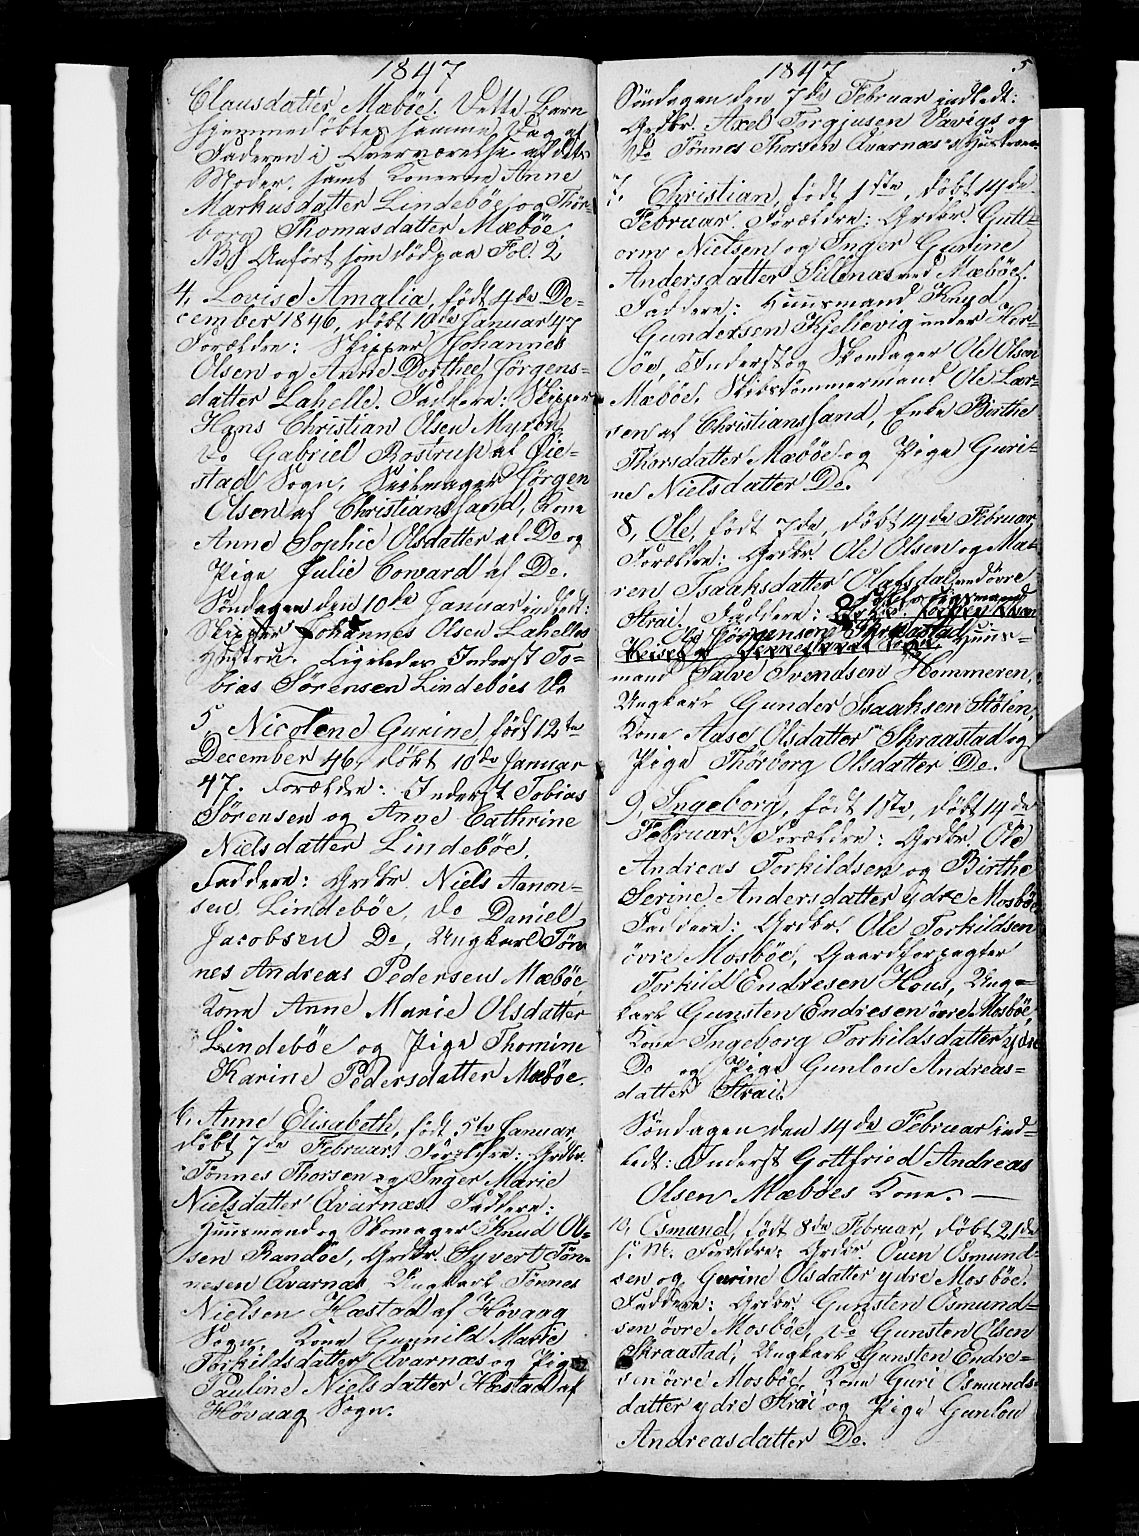 1847
Clausdatter Mæbøe. Dette Barn
hjemmedøbtes samme Dag af
Faderen i Overværelse af dets
Moder, samt Konerne Anne
Markusdatter Lindebøe og Thor-
borg Thomasdatter Mæbøe.
NB. Anført som død paa Fol. 2.
4, Lovise Amalia, født 4de De-
cember 1846, døbt 10de Januar 47
Forældre: Skipper Johannes
Olsen og Anne Dorthee Jørgens-
datter Lahelle. Faddere: Skipper
Hans Christian Olsen Myren,
Do Gabriel Rostrup af Øie-
stad Sogn, Seilmager Jørgen
Olsen af Christianssand, Kone
Anne Sophie Olsdatter af Do og
Pige Julie Coward af Do.
Søndagen den 10de Januar indledt:
Skipper Johannes Olsen Lahelles
Hustru. Ligeledes Inderst To-
bias Sørensen Lindebøes Do
5, Nicolene Gurine, født 12te
December 46, døbt 10de Januar
47. Forældre: Inderst Tobias
Sørensen og Anne Cathrine
Nielsdatter Lindebøe.
Faddere: Grdbr. Niels Aanon-
sen Lindebøe, Do Daniel
Jacobsen Do, Ungkarl Tøn-
nes Andreas Pedersen Mæbøe,
Kone Anne Marie Olsdatter
Lindebøe og Pige Thomine
Karine Pedersdatter Mæbøe.
6, Anne Elisabeth, født 5te Januar,
døbt 7de Februar. Forældre: Grdbr.
Tønnes Thorsen og Inger Marie
Nielsdatter Qvarnæs. Faddere:
Huusmand og Skomager Knud Ol-
sen Randøe, Grdbr. Syvert Tøn-
nesen Qvarnæs, Ungkarl Tønnes
Nielsen Hæstad af Høvaag
Sogn, Kone Gunnild Marie
Torkildsdatter Qvarnæs og Pige
Pauline Nielsdatter Hæstad af
Høvaag Sogn.
1847
5
Søndagen den 7de Februar indledt:
Grdbr. Axel Torgjusen Vavigs og
Do Tønnes Thorsen Qvarnæs's Hustruer
7, Christian, født 1ste, døbt 14de
Februar. Forældre: Grdbr. Gutt-
orm Nielsen og Inger Gurine
Andersdatter Sulenæs ved Mæbøe.
Faddere: Huusmand Knud
Gundersen Kjellevig under Her-
øe, Inderst og Skomager Ole Olsen
Mæbøe, Skibstømmermand Ole Lar-
sen af Christianssand, Enke Birthe
Thorsdatter Mæbøe og Pige Guri-
ne Nielsdatter Do.
8, Ole, født 7de, døbt 14de Februar,
Forældre: Grdbr. Ole Olsen og Ma-
ren Isaaksdatter Olagsdal ved øvre
Strai. Faddere:
Ole Jørgensen Skraastad, Huus-
mand Salve Svendsen Hommeren,
Ungkarl Gunder Isaaksen Stølen,
Kone Aase Olsdatter Skraastad og
Pige Thørborg Olsdatter Do.
9, Ingeborg, født 1ste, døbt 14de
Februar. Forældre: Grdbr. Ole
Andreas Torkildsen og Birthe
Serine Andersdatter ydre Mosbøe
Faddere: Grdbr. Ole Torkildsen
øvre Mosbøe, Gaardforpagter
Torkild Endresen Hous, Ung-
karl Gunsten Endresen øvre Mosbøe,
Kone Ingeborg Torkildsdatter ydre
Do og Pige Gunlou Andreas-
datter Strai.
Søndagen den 14de Februar ind-
ledt: Inderst Gottfried Andreas
Olsen Mæbøes Kone. —
10, Osmund, født 8de Februar, døbt 21de
s. M. Forældre: Grdbr. Ouen Osmund-
sen og Gurine Olsdatter ydre Mosbøe.
Faddere: Grdbr. Gunsten Osmund-
sen øvre Mosbøe, Do Gunsten Olsen
Skraastad, Ungkarl Gunsten Endre-
sen øvre Mosbøe, Kone Guri Osmunds-
datter ydre Strai og Pige Gunlou
Andreasdatter Do.